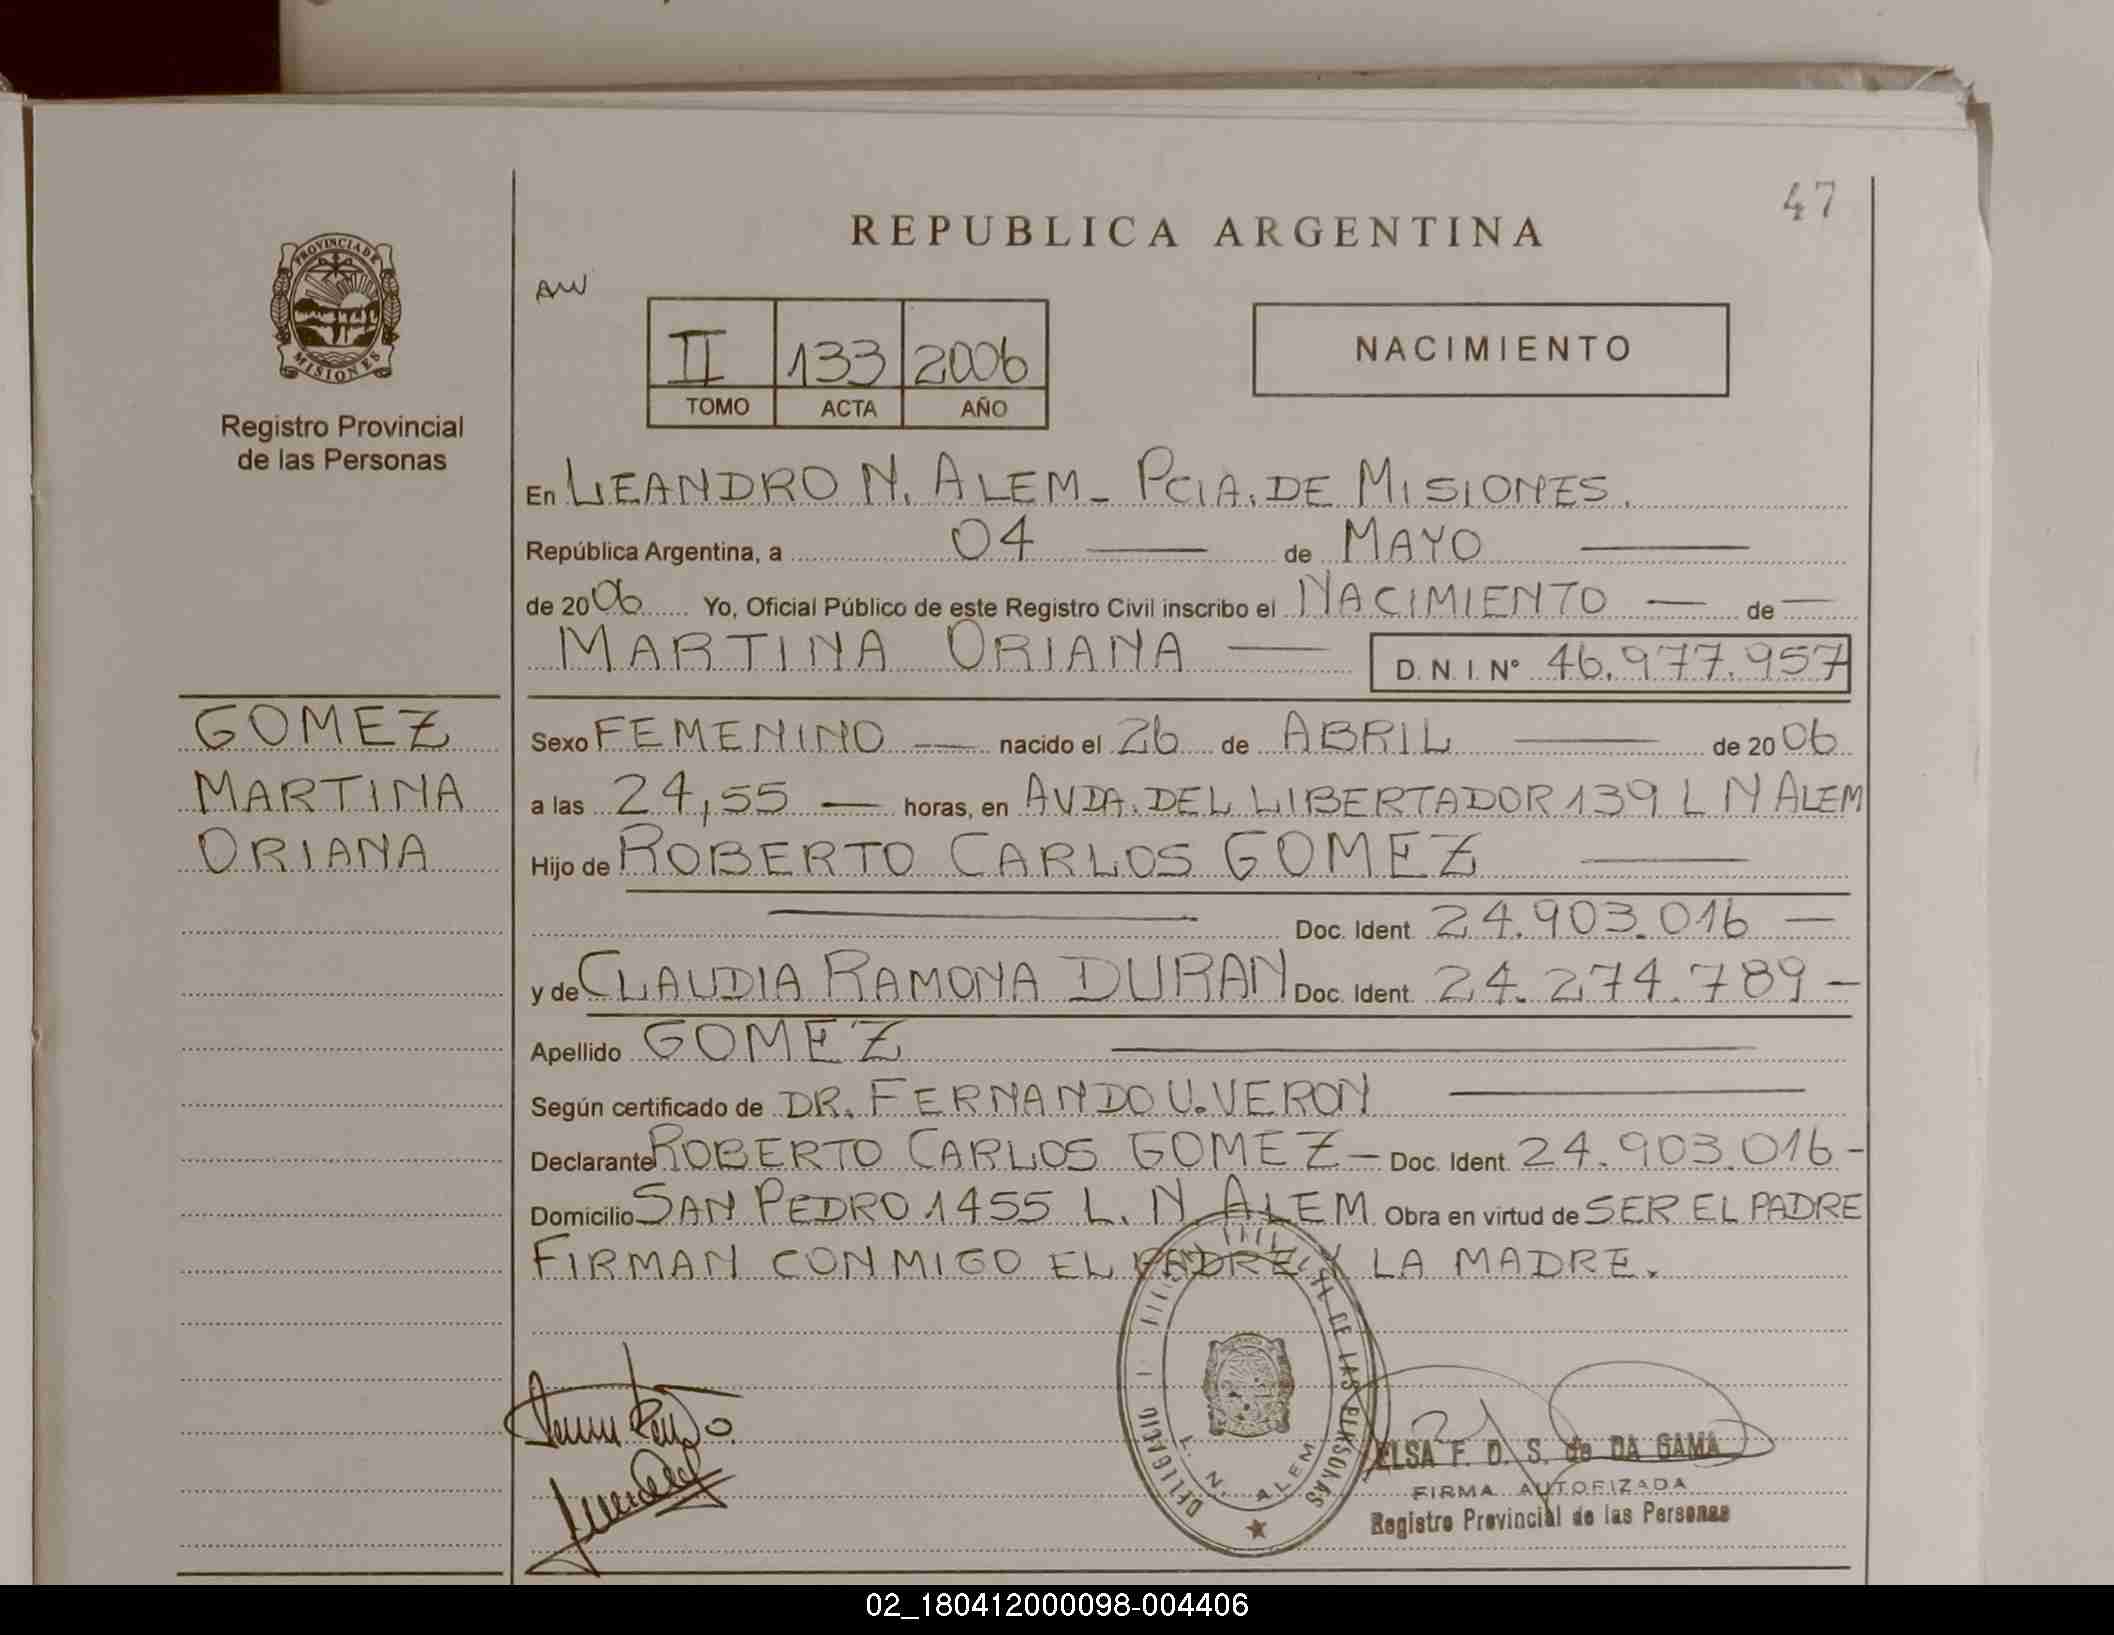 47
REPUBLICA ARGENTINA
PROVINCIA DE
MISIONES
AW
II 133 2006
TOMO ACTA AÑO
NACIMIENTO
Registro Provincial
de las Personas
En LEANDRO N. ALEM - PCIA. DE MISIONES.
República Argentina, a 04 — de MAYO —
de 2006 Yo, Oficial Público de este Registro Civil inscribo el NACIMIENTO — de —
MARTINA ORIANA — D.N.I. Nº 46.977.957
GOMEZ
MARTINA
ORIANA
Sexo FEMENINO — nacido el 26 de ABRIL — de 2006
a las 24,55 — horas, en AVDA. DEL LIBERTADOR 139 L N ALEM
Hijo de ROBERTO CARLOS GOMEZ —
— Doc. Ident. 24.903.016 —
y de CLAUDIA RAMONA DURAN Doc. Ident. 24.274.789 -
Apellido GOMEZ —
Según certificado de DR. FERNANDO U. VERON —
Declarante ROBERTO CARLOS GOMEZ — Doc. Ident. 24.903.016 -
Domicilio SAN PEDRO 1455 L. N. ALEM Obra en virtud de SER EL PADRE
FIRMAN CONMIGO EL PADRE Y LA MADRE.
DE LAS PERSONAS
L. N. ALEM
ELSA F. D. S. de DA GAMA
FIRMA AUTORIZADA
Registro Provincial de las Personas
02_180412000098-004406